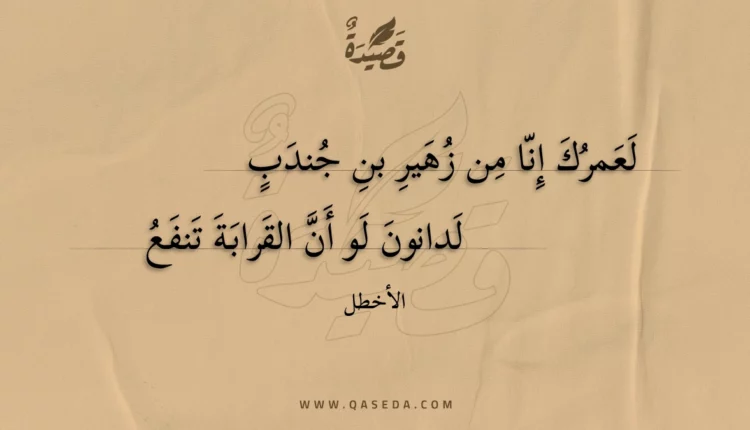 قَصِيدَةٌ
لَعَمرُكَ إِنّا مِن زُهَيرِ بنِ جُندَبٍ
لَدانونَ لَو أَنَّ القَرابَةَ تَنفَعُ
الأخطل
WWW.QASEDA.COM